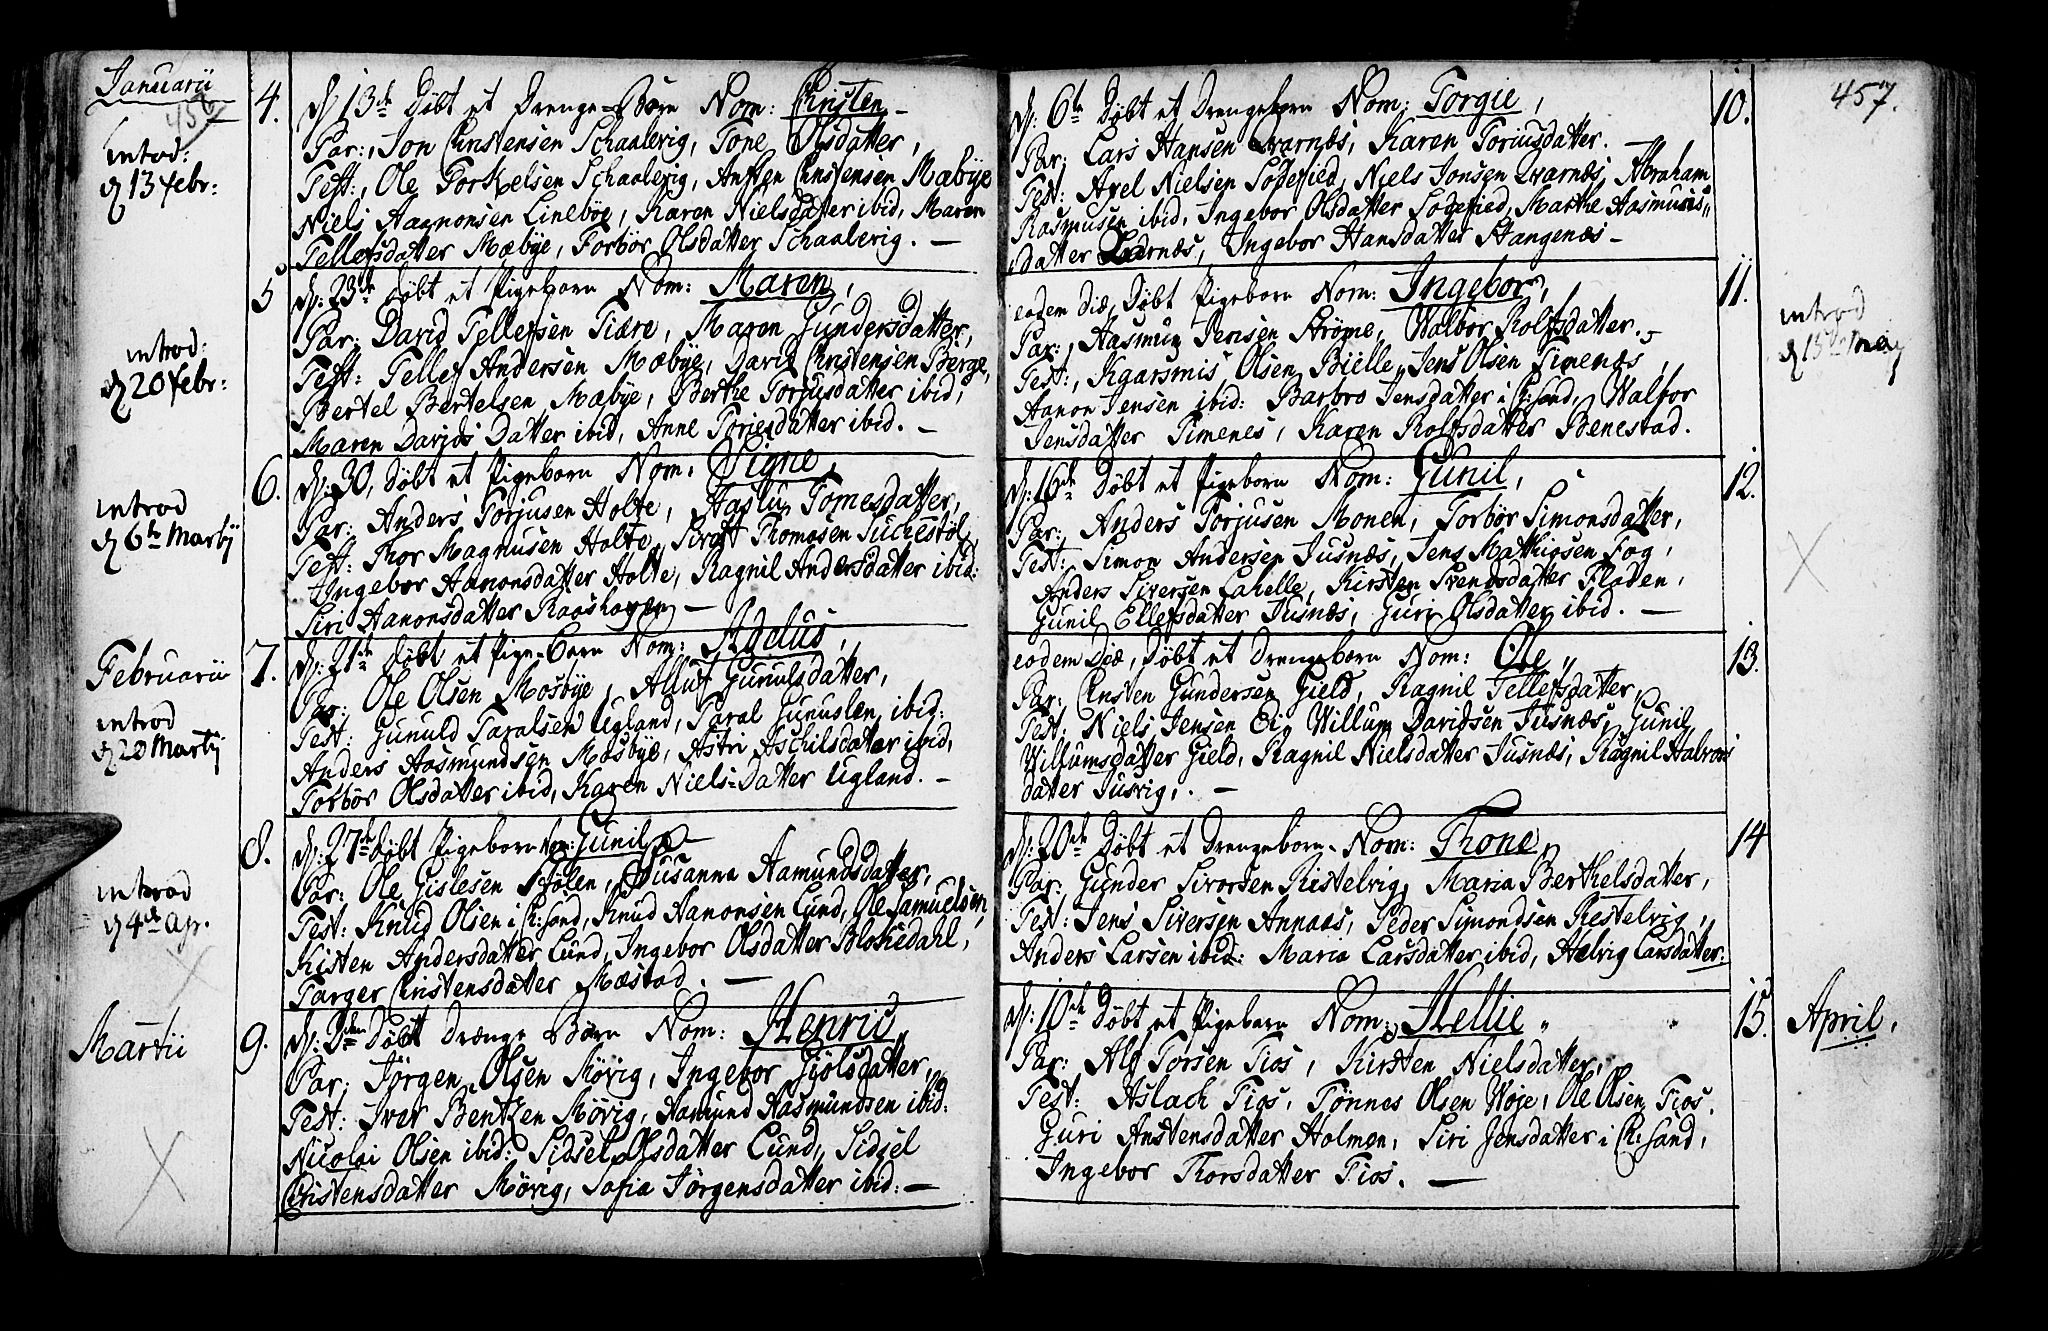 Januarii
456
4.
d. 13de Døbt et Drenge-Børn Nom: Christen
introd:
d 13 febr:
Par:, Jon Christensen Schaalevig, Tone Olsdatter,
Test:, Ole Torkelsen Schaalevig, Ansten Christensen Mæbye
Niels Aagnonsen Lineböe, Karen Nielsdatter ibid, Maren
Tellefsdatter Mæbye, Torbör Olsdatter Schaalevig. —
5
d: 23de Døbt et Pigebarn Nom: Maren,
introd:
d 20 febr:
Par: David Tellefsen Tiære, Maren Gundersdatter,
Test: Tellef Andersen Mæbye, David Christensen Berge,
Bertel Bertelsen Mæbye, Berthe Torjusdatter ibid,
Maren Davids Datter ibid, Anne Toriesdatter ibid. —
6.
d: 30, Døbt et Pigebarn Nom: Signe,
introd
d 6te Martij
Par: Anders Torjusen Holte, Aaslu Tomesdatter,
Test: Thor Magnusen Holte, Sivert Thomosen Suchestöl,
Ingebor Aanonsdatter Holte, Ragnil Andersdatter ibid:
Siri Aanonsdatter Raashagen —
Februarii
7.
d: 21de Døbt et Pige-Barn Nom: Adelus,
introd
d 20 Martij
Par: Ole Olsen Mosbye, Alluf Gunulsdatter,
Test: Gunuld Taralsen Ugland, Taral Gunuslen ibid:
Anders Aasmundsen Mosbye, Astri Aschilsdatter ibid,
Torbör Olsdatter ibid, Karen Niels-Datter Ugland. —
8.
d: 27de Døbt Pigebarn Nom: Gunil
introd
d 4de Apr.
Par: Ole Gislesen Stölen, Susanna Aamundsdatter,
Test: Knud Olsen i Ch: sand, Knud Aanonsen Lund, Ole Samuelsen,
Kisten Andersdatter Lund, Ingebor Olsdatter Blokedahl,
Targer Christensdatter Mæstad. —
Martii
9.
d: 2den Døbt Drænge Børn Nom: Henric
Par: Jörgen Olsen Kövig, Ingebor Giölsdatter,
Test: Iver Bentzen Mövig, Aamund Aasmundsen ibid:
Nicolai Olsen ibid: Sidsel Olsdatter Lund, Sidsel
Christensdatter Mövig, Sofia Jörgensdatter ibid: —
457.
10.
d: 6te Døbt et Drengebarn Nom: Torgie,
Par: Lars Hansen Qvarnæs, Karen Toriusdatter.
Test: Axel Nielsen Södefied, Niels Jonsen Qvarnæs, Abraham
Rasmusen ibid, Ingebor Olsdatter Södefied, Marthe Aasmunds„
datter Qvarnæs, Ingebor Hansdatter Stangenæs —
11.
eodem Diæ, Døbt Pigebarn Nom: Ingebor,
introd
d 15de May
Par:, Aasmun Jensen Ströme, Walbor Rolfsdatter.
Test:, Kgarsmis Olsen Bielle, Jens Olsen Timenæs,
Aanon Jensen ibid: Barbro Jensdatter i Ch: sand, Walbor
Jensdatter Timenes, Karen Rolfsdatter Benestad.
12.
d: 16de Døbt et Pigebarn Nom: Gunil,
Par:, Anders Torjusen Monen, Torbör Simonsdatter,
Test: Simon Andersen Jusnæs, Jens Mathiesen Fog,
Anders Siversen Lahelle, Kirsten Svendsdatter Floden,
Gunil Ellefsdatter Jusnæs, Guri Olsdatter ibid. —
13.
eodem Diæ, Døbt et Drengebarn Nom: Ole,,
Par:, Christen Gundersen Gield, Ragnil Tellefsdatter,
Test: Niels Jensen Ei, Willum Davidsen Jusnæs, Gunil
Willumsdatter Gield, Ragnil Nielsdatter Jusnæs, Ragnil Halvors
datter Jusvig,. —
14
d: 20de Døbt et Drengebarn Nom: Thone,
Par:, Gunder Sivorsen Kistelvig, Maria Berthelsdatter,
Test: Jens Siversen Annaas, Peder Simondsen Kestelvig,,
Anders Larsen ibid: Maria Larsdatter ibid, Helvig Larsdatter:
15.
April.
d: 10de Døbt et Pigebarn Nom: Hellie „
Par: Alf Torsen Tios, Kirsten Nielsdatter,
Test: Aslach Tios, Tönnes Olsen Vöje, Ole Olsen Tios,
Guri Anstensdatter Holmen, Siri Jensdatter i Ch: sand,
Ingebor Thorsdatter Tios. —